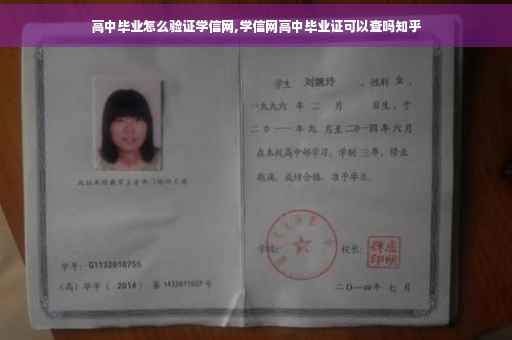 高中毕业怎么验证学信网,学信网高中毕业证可以查吗知乎
学生 刘婉玲 ，性别 女 ，
一九九六 年 二 月 日生，于
二〇一一 年 九 月至 二〇一四 年 六 月
在本校高中部学习，学制 三 年，修业
期满，成绩合格，准予毕业。
学号：G1132010755
学校：
校长：
（高）毕字（ 2014 ）第 1432011027 号
二〇一四年 七 月